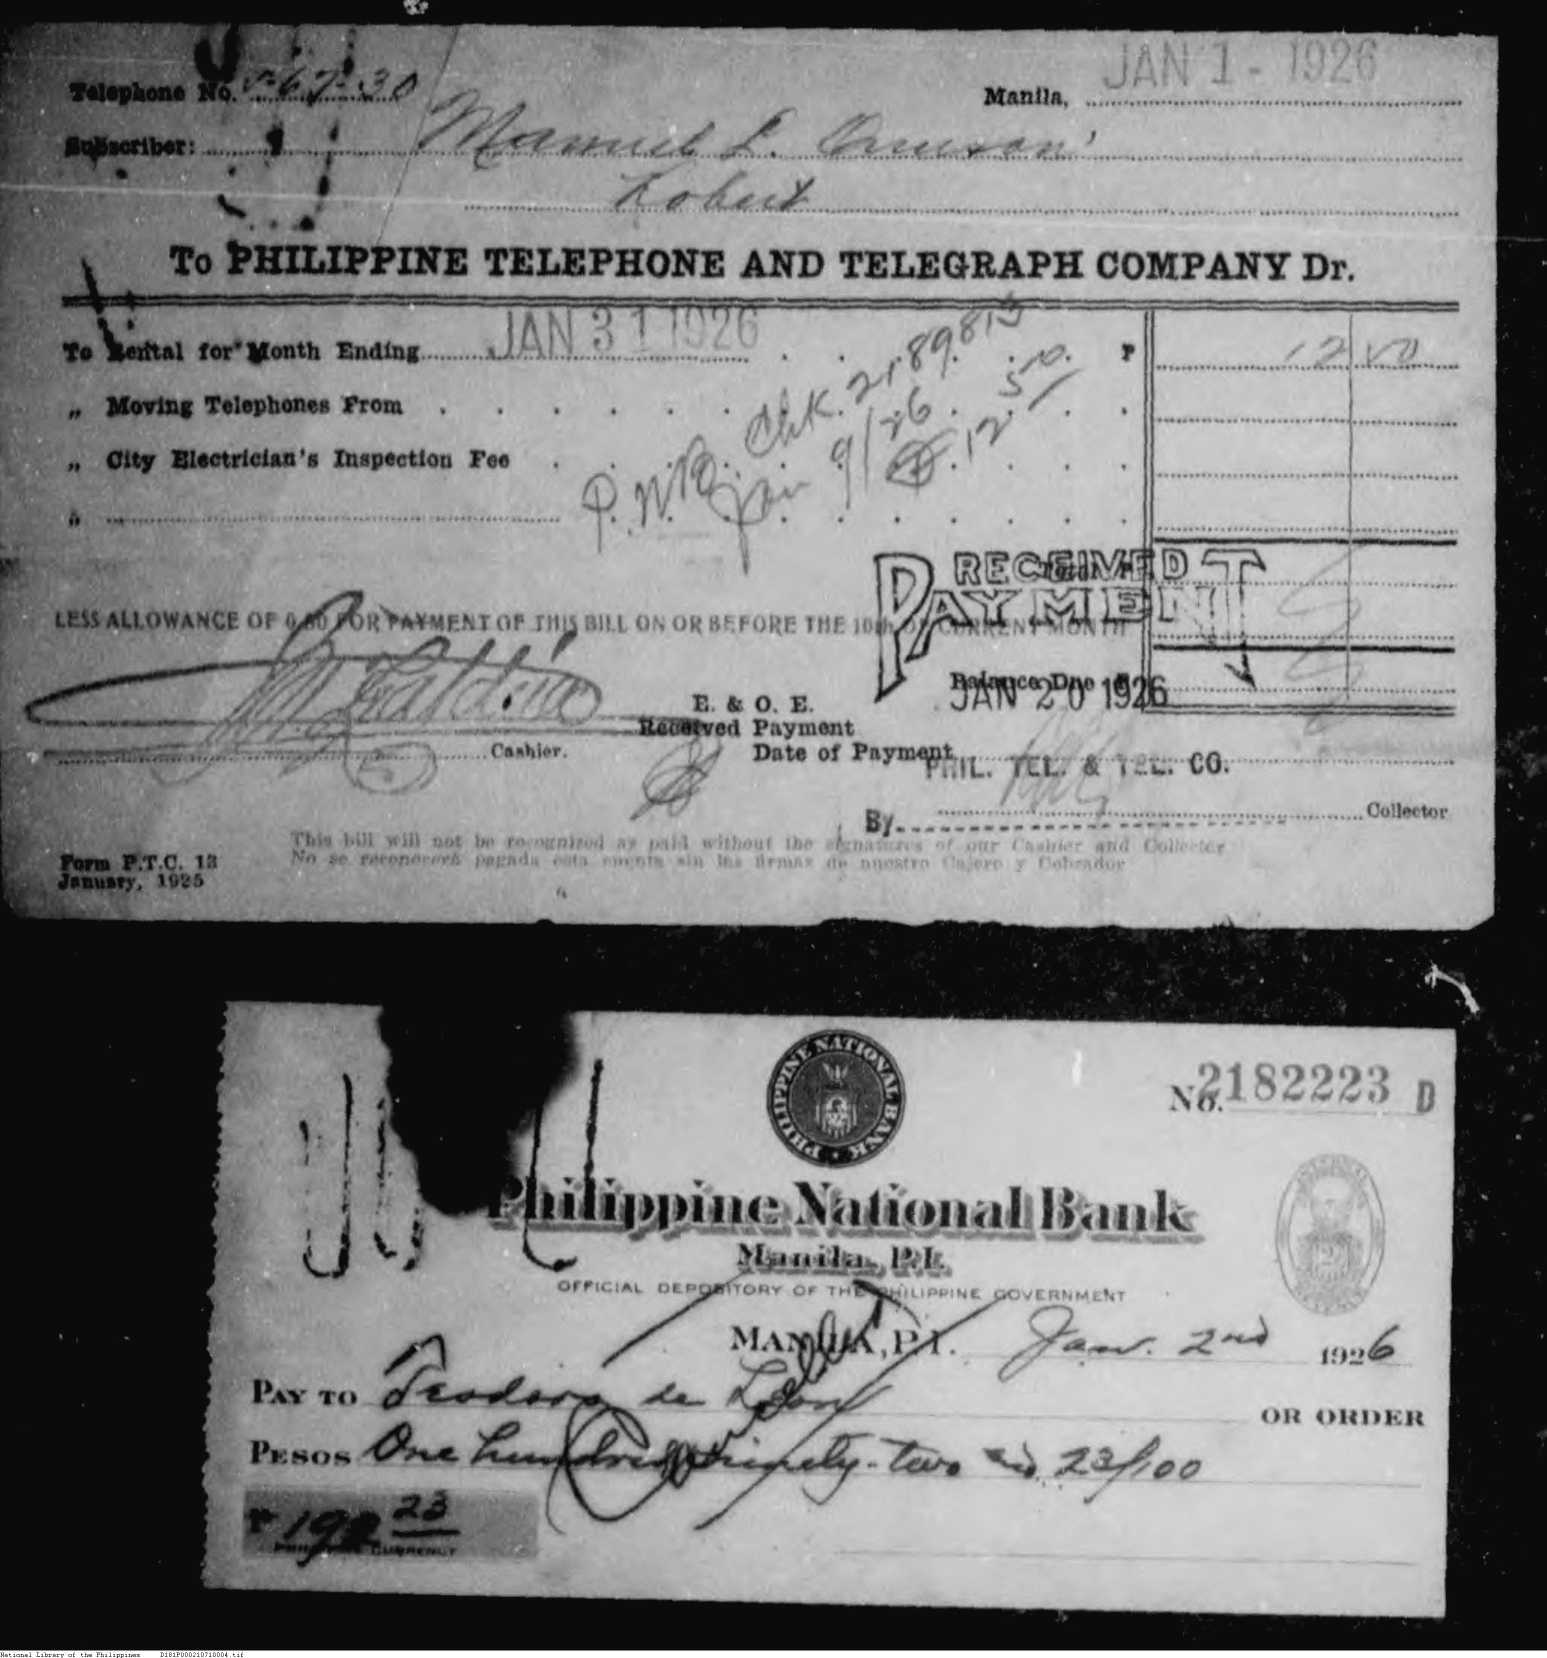 JAN 1 - 1926
Telephone No. 5-67-30
Manila,
Subscriber: Manuel L.
To PHILIPPINE TELEPHONE AND TELEGRAPH COMPANY Dr.
To Rental for Month Ending JAN 31 1926 ₱ 12 50
„ Moving Telephones From
„ City Electrician's Inspection Fee
„
P.N.B. Chk. 2189813
Jan 9/26 12 50
RECEIVED PAYMENT
LESS ALLOWANCE OF 0.50 FOR PAYMENT OF THIS BILL ON OR BEFORE THE 10th OF CURRENT MONTH
Balance Due ₱
JAN 20 1926
E. & O. E.
Received Payment
Cashier.
Date of Payment
PHIL. TEL. & TEL. CO.
By Collector
This bill will not be recognized as paid without the signatures of our Cashier and Collector
No se reconocerá pagada esta cuenta sin las firmas de nuestro Cajero y Cobrador
Form P.T.C. 13
January, 1925
PHILIPPINE NATIONAL BANK
PHILIPPINE BANK
No. 2182223 D
Philippine National Bank
Manila, P.I.
OFFICIAL DEPOSITORY OF THE PHILIPPINE GOVERNMENT
MANILA, P.I. Jan. 2nd 1926
PAY TO Teodoro de Leon OR ORDER
PESOS One hundred ninety-two and 23/100
₱ 192 23
PHILIPPINE CURRENCY
National Library of the Philippines D181P000210710004.tif